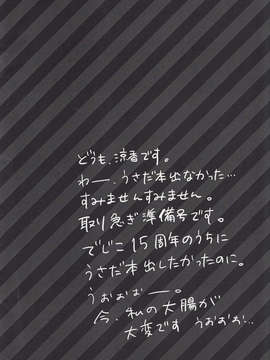 どうも、涼香です。
わー、うさだ本出なかった…
すみませんすみません。
取り急ぎ準備号です。
でじこ15周年のうちに
うさだ本出したかったのに。
うぉぉぉー。
今、私の大腸が
大変です うおおお…